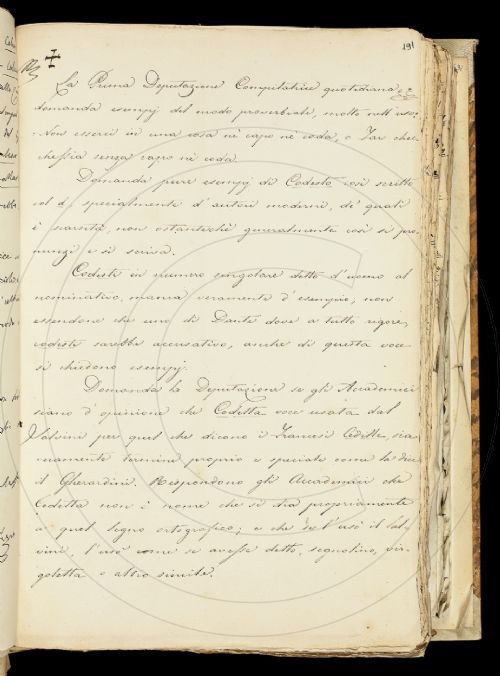 191
La Prima Deputazione Compilatrice quotidiana
domanda esempj del modo proverbiale, molto nell'uso:
Non esserci in una cosa nè capo nè coda, o Far che
chessia senza capo nè coda.
Domanda pure esempj di Codesto così scritto
col d, specialmente d'autori moderni, de' quali
è scarsità, non ostantechè generalmente così si pro
nunzj e si scriva.
Codesti in numero singolare detto d'uomo al
nominativo, manca veramente d'esempio, non
essendone che uno di Dante dove a tutto rigore,
codesti sarebbe accusativo, anche di questa voce
si chiedono esempj.
Domanda la Deputazione se gli Accademici
siano d'opinione che Codetta voce usata dal
Salvini per quel che dicono i Francesi Cédille, sia
veramente termine proprio e speciale come la dice
il Gherardini. Rispondono gli Accademici che
Codetta non è nome che si dia propriamente
a quel segno ortografico; e che se l'usò il Sal
vini, l'usò come se avesse detto, segnolino, vir
goletta o altro simile.